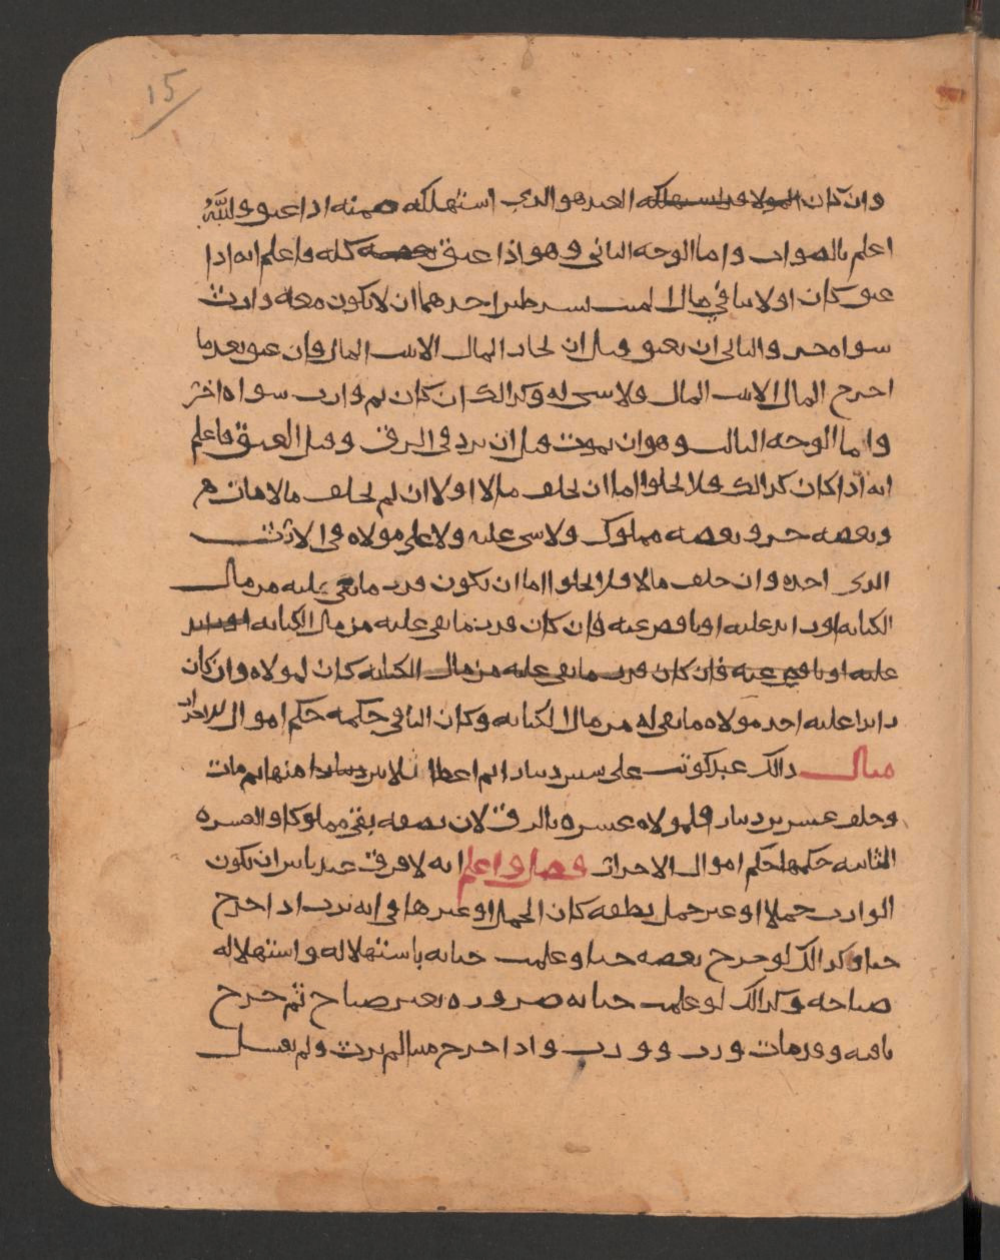 15
وان كان المولا قد استهلكه العبد هو الذي استهلكه ضمنه اذا عتق والله
اعلم بالصواب واما الوجه الثاني وهو اذا عتق بعضه كله فاعلم انه اذا
عتق كان اولا بباقي مال الميت بشرطين احدهما ان لا يكون معه وارث
سواه حر والثاني ان يعتق قبل ان يحاز المال الى بيت المال وان عتق بعدما
احرج المال الى بيت المال فلا شي له وكذالك ان كان ثم وارث سواه اخذ
واما الوجه الثالث وهو ان يموت قبل ان يرد في الرق وقبل العتق فاعلم
انه اذا كان كذالك فلا يخلوا اما ان يخلف مالا او لا ان لم يخلف مالا مات
وبعضه حر وبعضه مملوك ولا شي عليه ولا على مولاه في الارث
الذي اخذه وان خلف مالا فلا يخلوا اما ان يكون قدر ما بقي عليه من مال
الكتابة او زايد عليه او ناقص عنه فان كان قدر ما بقي عليه من مال الكتابة او زايد
عليه او ناقص عنه فان كان قدر ما بقي عليه من مال الكتابة كان لمولاه وان كان
زايدا عليه اخذ مولاه ما بقي له من مال الكتابة وكان الباقي حكمه حكم اموال الاحرار
مثال ذالك عبد كوتب على ستين دينارا ثم اعطا ثلاثين دينارا منها ثم مات
وخلف عشرين دينار فلمولاه عشره بالرق لان نصفه بقى مملوكا والعشره
الثانيه حكمها حكم اموال الاحرار فصل واعلم انه لا فرق عندنا بين ان يكون
الوارث حملا او غير حمل نطفه كان الحمل او غيرها في انه يرث اذا خرج
حيا وكذالك لو خرج بعضه حيا وعلمت حياته باستهلاله واستهلاله
صياحه وكذالك لو علمت حياته ضروره بغير صياح ثم خرج
باقيه وقد مات ورث وورث واذا خرج ميتا لم يرث ولم يغسل